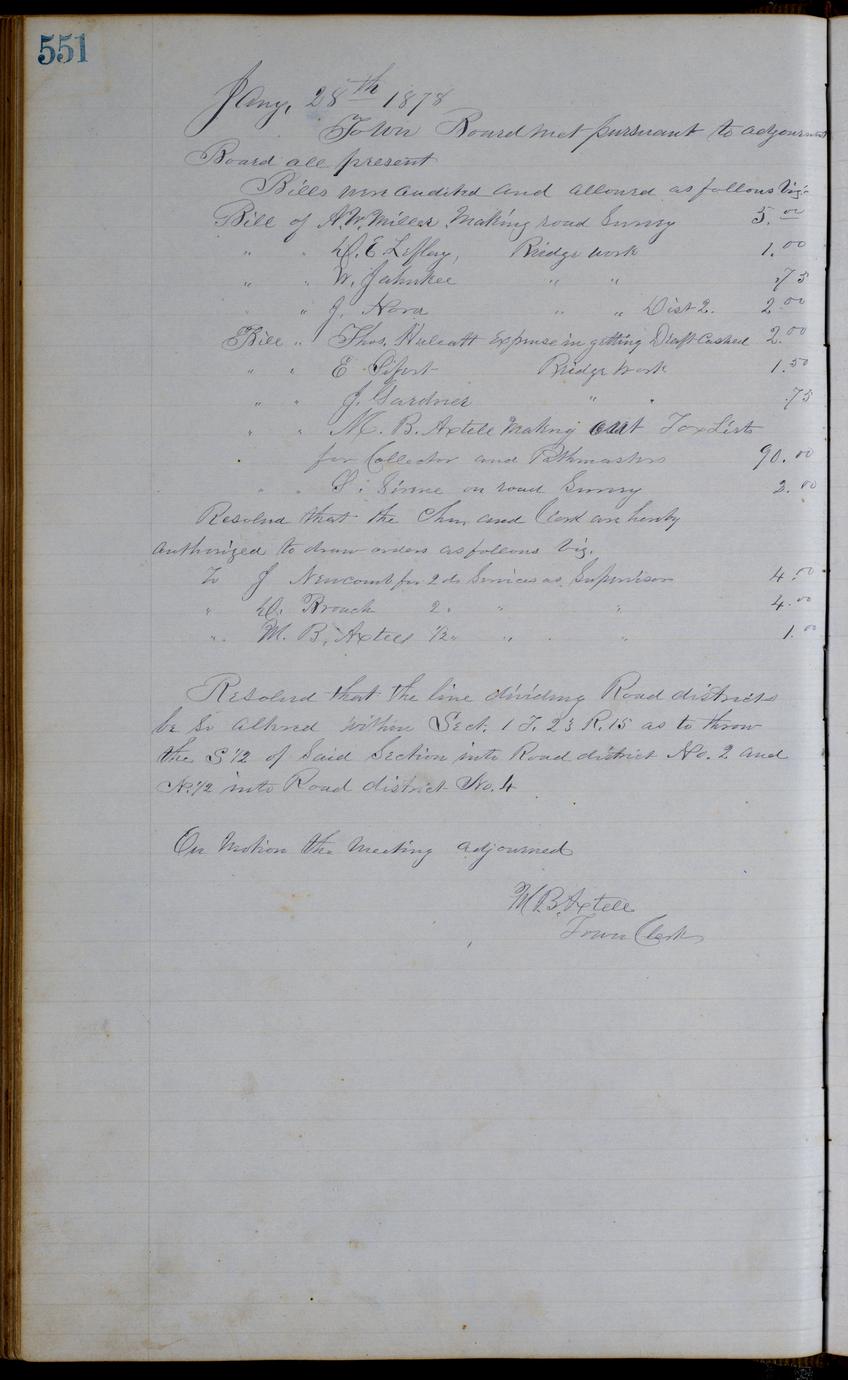 551
Jany, 28th 1878
Town Board met pursuant to adjournment
Board all present
Bills were audited and allowed as follows viz-
Bill of A.W. Miller Making road Survey 5.00
" " D. E. Leflay, Bridge work 1.00
" " W. Jahnkee " " .75
" " J. Nova " " Dist 2. 2.00
Bill " Thos. Hulcatt expense in getting Draft Cashed 2.00
" " E Sifert Bridge Work 1.50
" " J. Gardner " " .75
" " M. B. Axtell Making out Tax Lists
for Collector and Pathmasters 90.00
" " on road Survey 2.00
Resolved that the Chm and Clerk are hereby
authorized to draw orders as follows Viz.
To J Newcomb for 2 ds Services as Supervisor 4.00
" D. Broach 2 " " " 4.00
" M. B. Axtell 1/2 " " " 1.00
Resolved that the line dividing Road districts
be so altered within Sect. 1 T. 23 R. 15 as to throw
the S 1/2 of Said Section into Road district No. 2 and
N. 1/2 into Road district No. 4
On Motion the Meeting adjourned
M.B. Axtell
Town Clerk